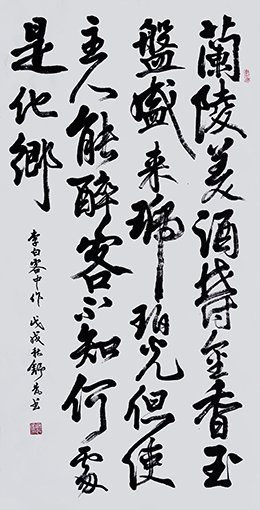 蘭陵美酒鬱金香玉
盤盛来琥珀光但使
主人能醉客不知何處
是他鄉
李白客中作 戊戌秋舒